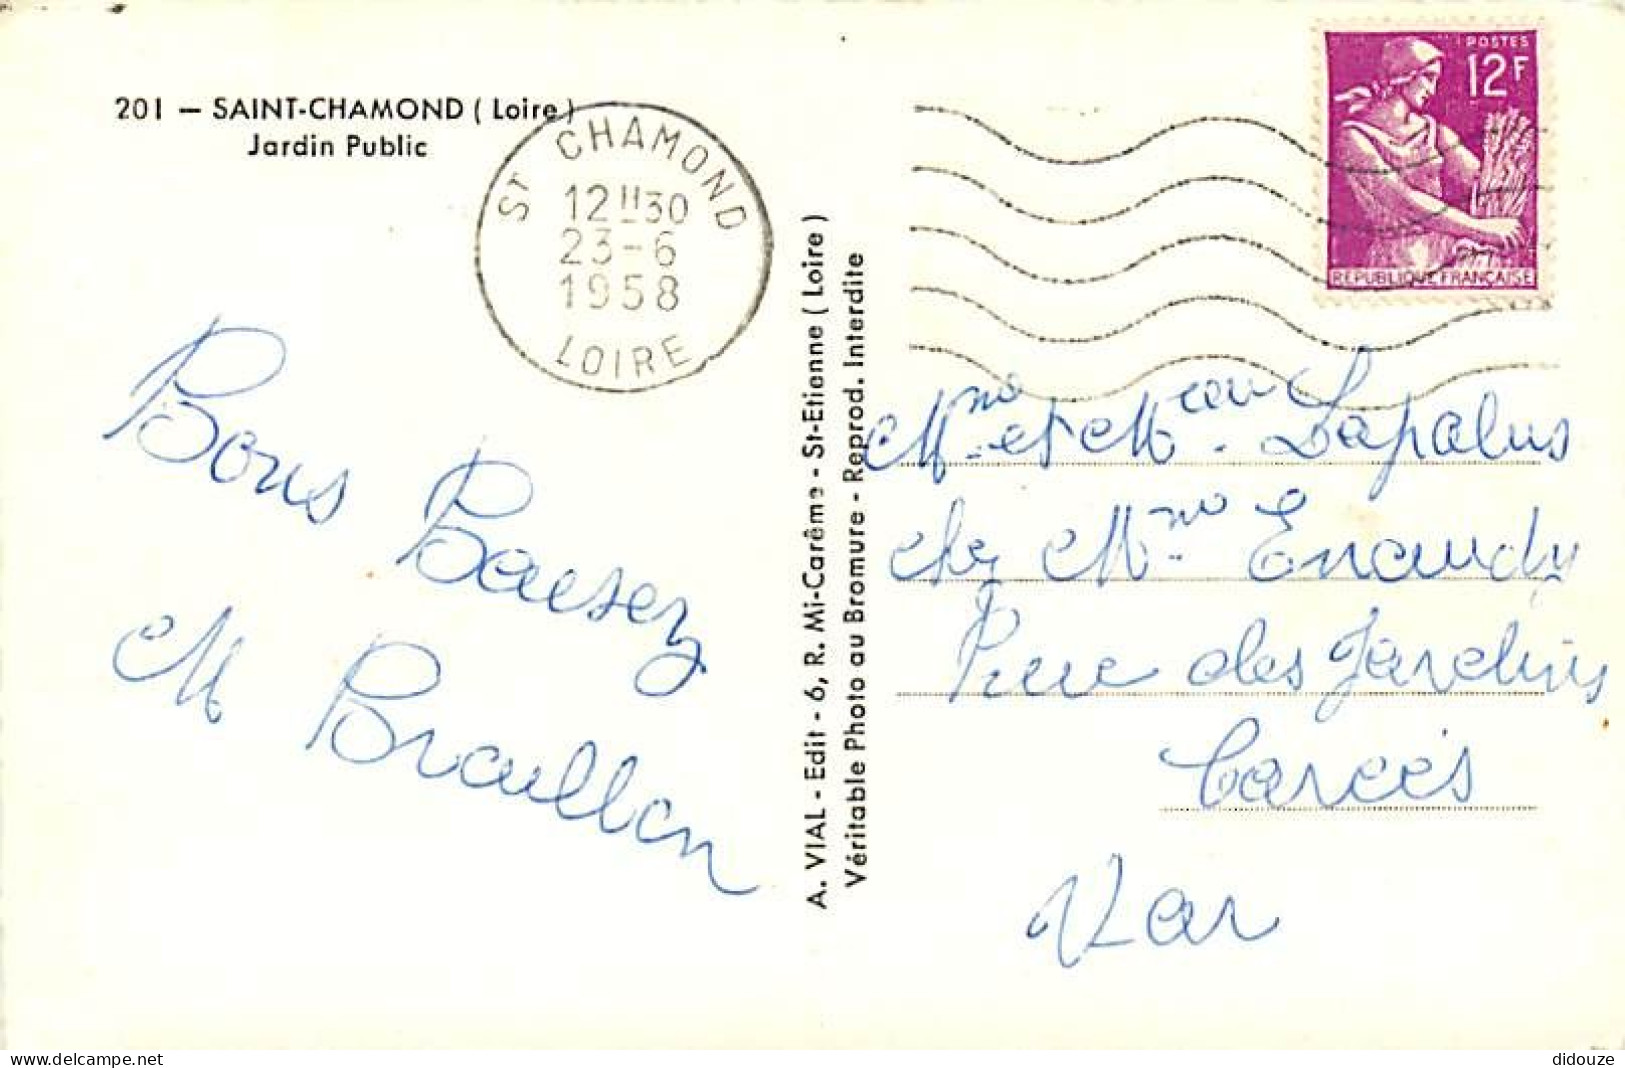 201 — SAINT-CHAMOND ( Loire )
Jardin Public
ST CHAMOND
12H30
23-6
1958
LOIRE
POSTES
12F
REPUBLIQUE FRANÇAISE
Bons Baisez
M Braillon
A. VIAL - Edit - 6, R. Mi-Carême - St-Etienne ( Loire )
Véritable Photo au Bromure - Reprod. Interdite
Mme et M Lapalus
chez Mme Enaudy
Rue des Jardins
Carcès
Var
delcampe.net
didouze